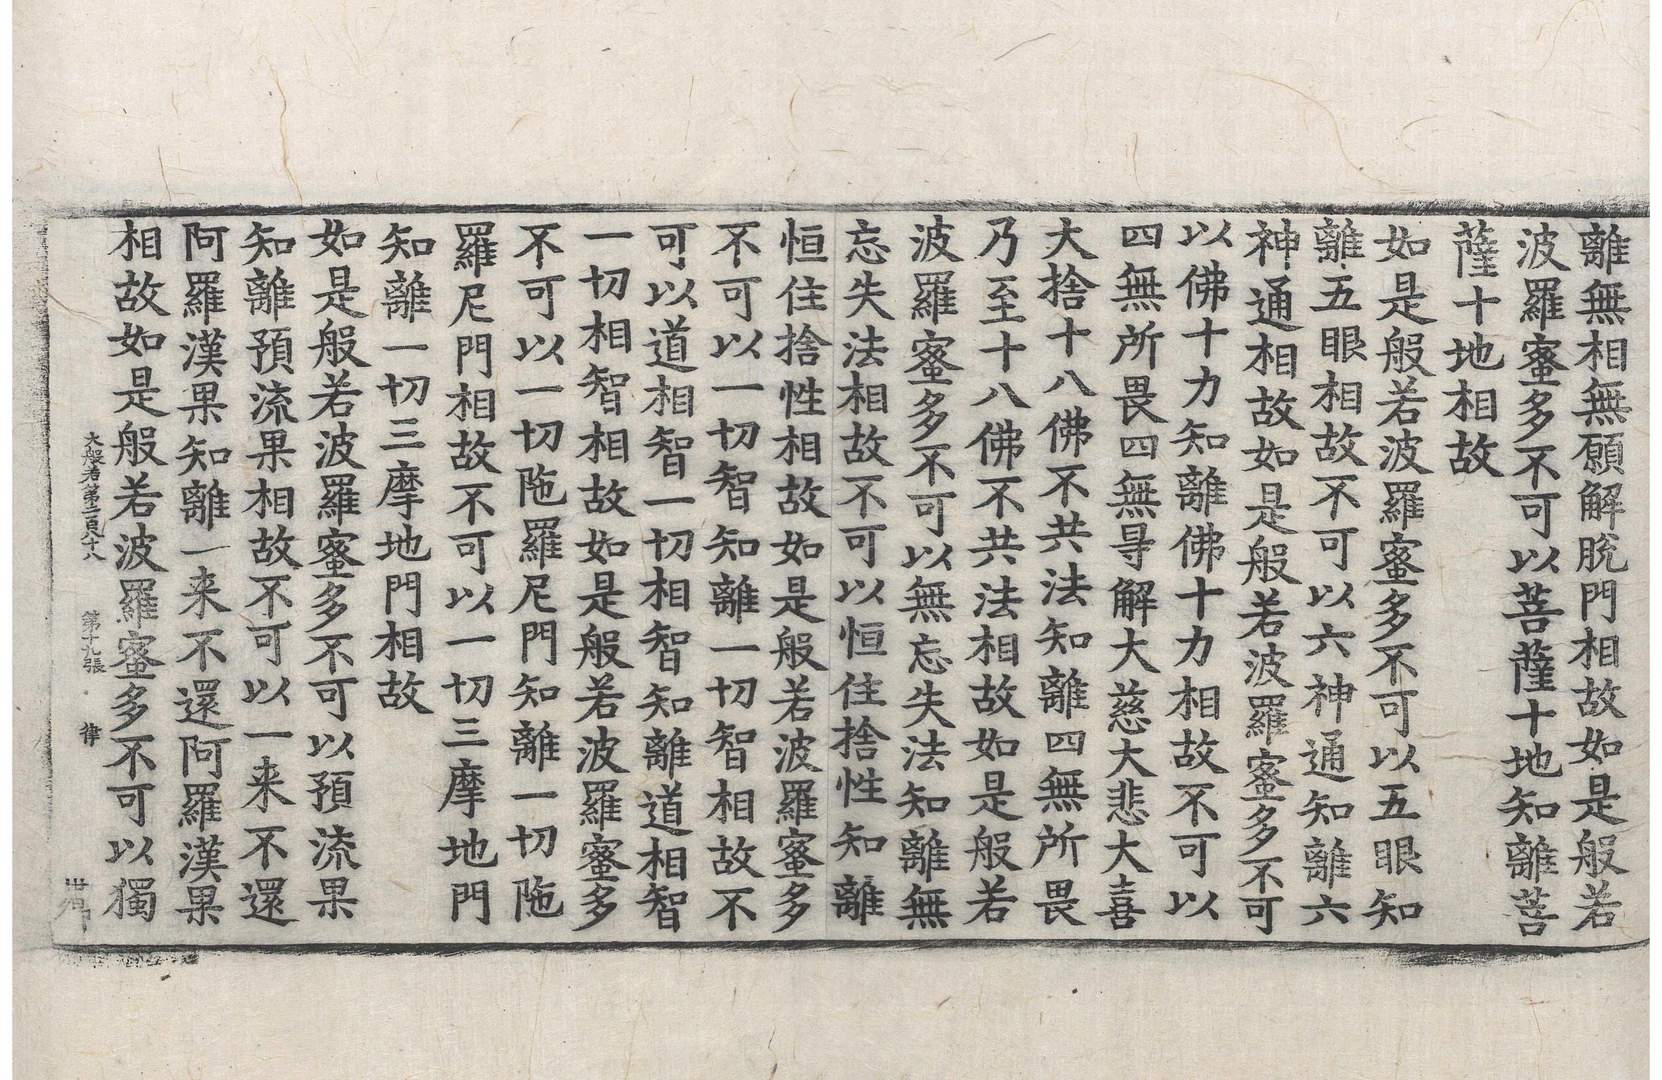 離無相無願解脫門相故如是般若
波羅蜜多不可以菩薩十地知離菩
薩十地相故
如是般若波羅蜜多不可以五眼知
離五眼相故不可以六神通知離六
神通相故如是般若波羅蜜多不可
以佛十力知離佛十力相故不可以
四無所畏四無㝵解大慈大悲大喜
大捨十八佛不共法知離四無所畏
乃至十八佛不共法相故如是般若
波羅蜜多不可以無忘失法知離無
忘失法相故不可以恒住捨性知離
恒住捨性相故如是般若波羅蜜多
不可以一切智知離一切智相故不
可以道相智一切相智知離道相智
一切相智相故如是般若波羅蜜多
不可以一切陁羅尼門知離一切陁
羅尼門相故不可以一切三摩地門
知離一切三摩地門相故
如是般若波羅蜜多不可以預流果
知離預流果相故不可以一来不還
阿羅漢果知離一来不還阿羅漢果
相故如是般若波羅蜜多不可以獨
大般若第二百九十八 第十九張 律